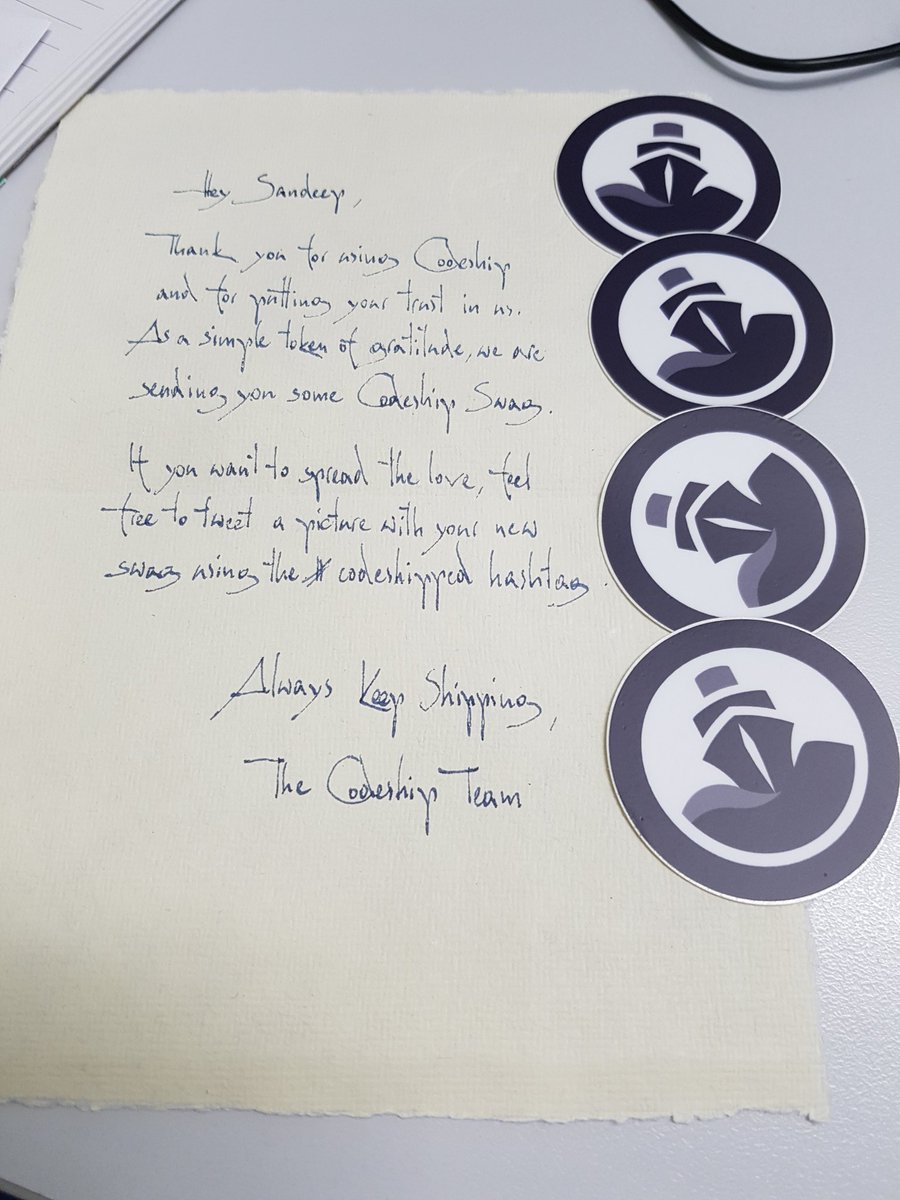 Hey Sandeep,
Thank you for using Codeship
and for putting your trust in us.
As a simple token of gratitude, we are
sending you some Codeship Swag.
If you want to spread the love, feel
free to tweet a picture with your new
swag using the # codeshipped hashtag.
Always Keep Shipping,
The Codeship Team